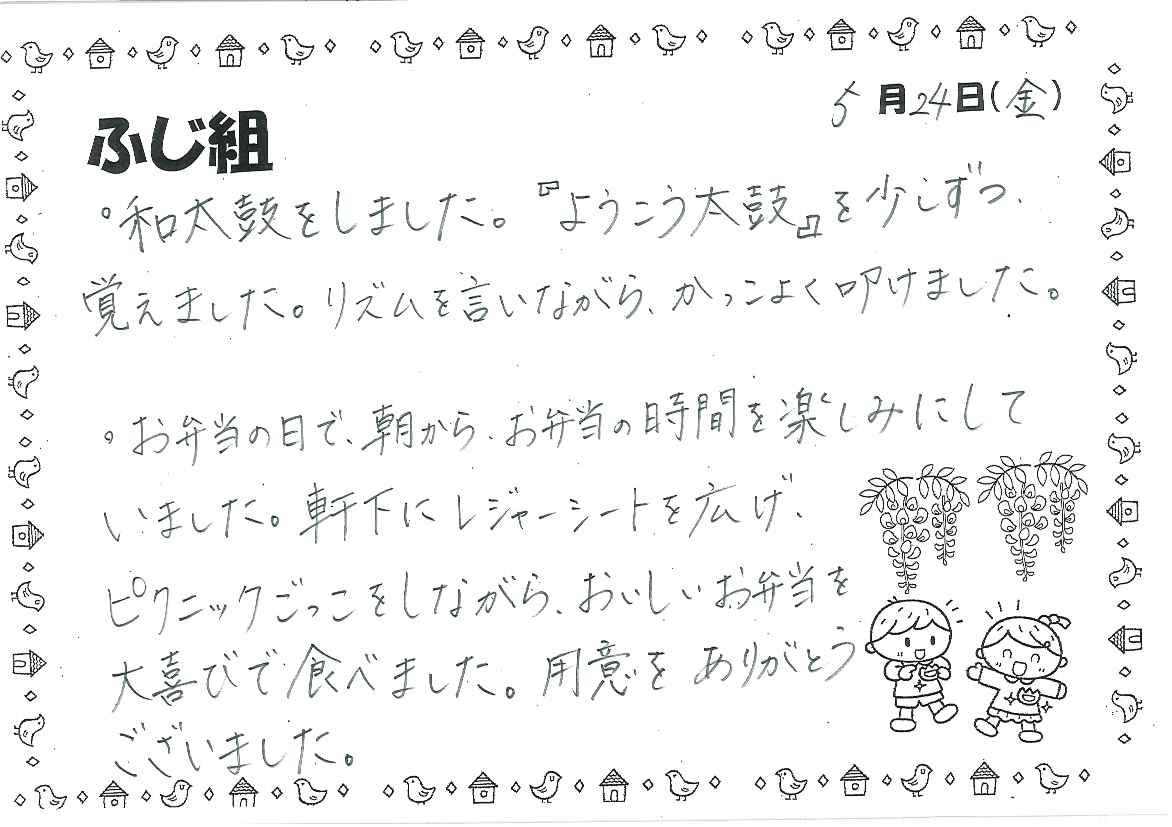 5月24日(金)
ふじ組
。和太鼓をしました。『ようこう太鼓』を少しずつ、
覚えました。リズムを言いながら、かっこよく叩けました。
。お弁当の日で、朝から、お弁当の時間を楽しみにして
いました。軒下にレジャーシートを広げ、
ピクニックごっこをしながら、おいしいお弁当を
大喜びで食べました。用意をありがとう
ございました。